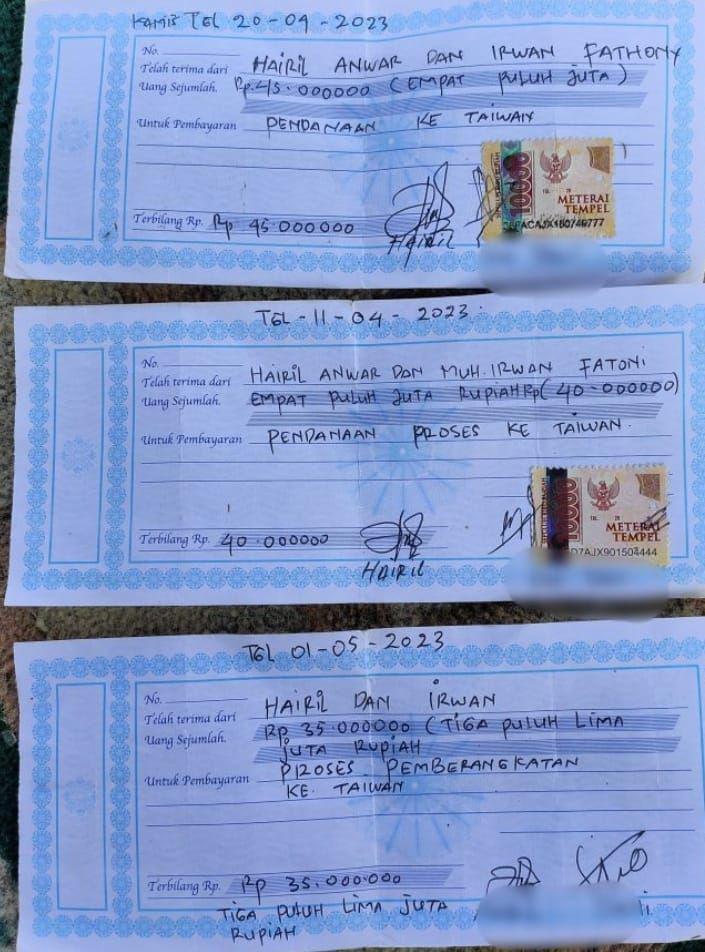 KAMIS TGL 20-04-2023
No.
Telah terima dari HAIRIL ANWAR DAN IRWAN FATHONY
Uang Sejumlah. Rp. 45.000000 (EMPAT PULUH JUTA)
Untuk Pembayaran PENDANAAN KE TAIWAN
10000
METERAI
TEMPEL
Terbilang Rp. Rp 45.000000
HAIRIL
TGL - 11 - 04 - 2023.
No.
Telah terima dari HAIRIL ANWAR DAN MUH. IRWAN FATONI
Uang Sejumlah. EMPAT PULUH JUTA RUPIAH Rp (40.000000)
Untuk Pembayaran PENDANAAN PROSES KE TAIWAN.
10000
METERAI
TEMPEL
D7AJX901504444
Terbilang Rp. 40.000000
HAIRIL
TGL 01-05-2023
No.
Telah terima dari HAIRIL DAN IRWAN
Uang Sejumlah. Rp 35.000000 (TIGA PULUH LIMA
JUTA RUPIAH
Untuk Pembayaran PROSES PEMBERANGKATAN
KE. TAIWAN
Terbilang Rp. Rp 35.000.000
TIGA PULUH LIMA JUTA
RUPIAH